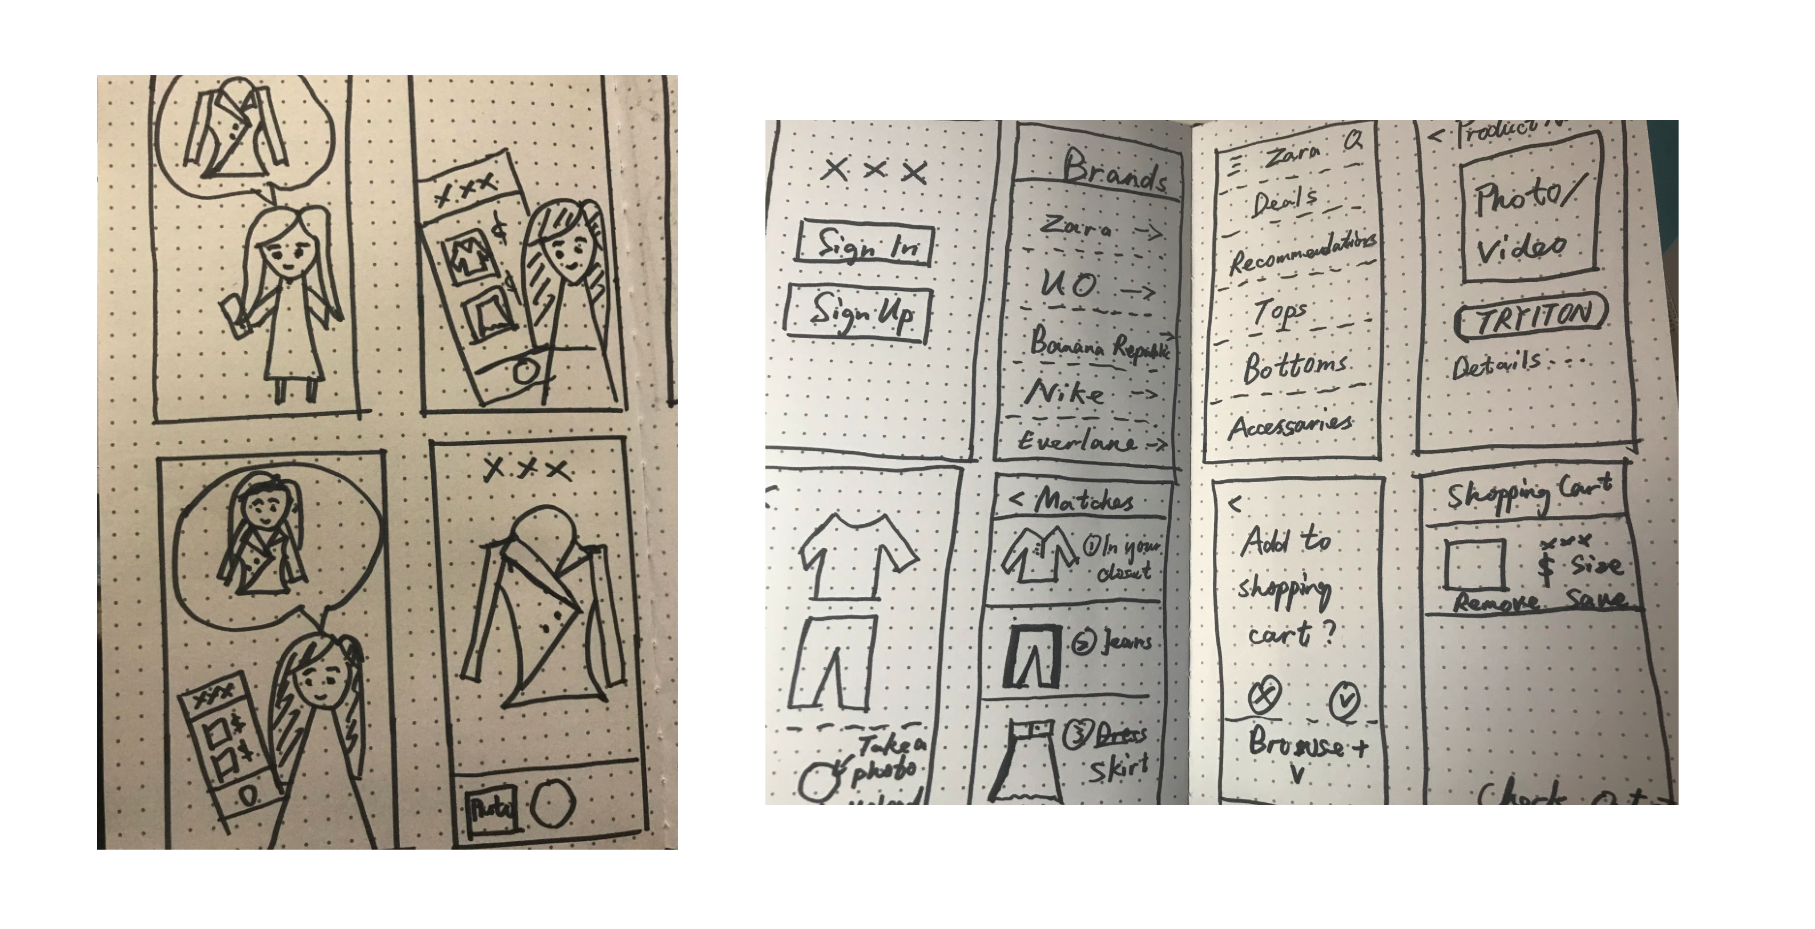 xxx
$
xxx
$
$
xxx
Photo
xxx
Sign In
Sign Up
Brands
Zara →
UO →
Banana Republic →
Nike →
Everlane →
≡ Zara Q
Deals
Recommendations
Tops
Bottoms
Accessaries
< Product
Photo/
Video
TRY IT ON
Details...
Take a
photo
upload
< Matches
① In your
closet
② Jeans
③ Dress
Skirt
<
Add to
shopping
cart?
Browse +
Shopping Cart
xxx
$ Size
Remove Save
Check Out